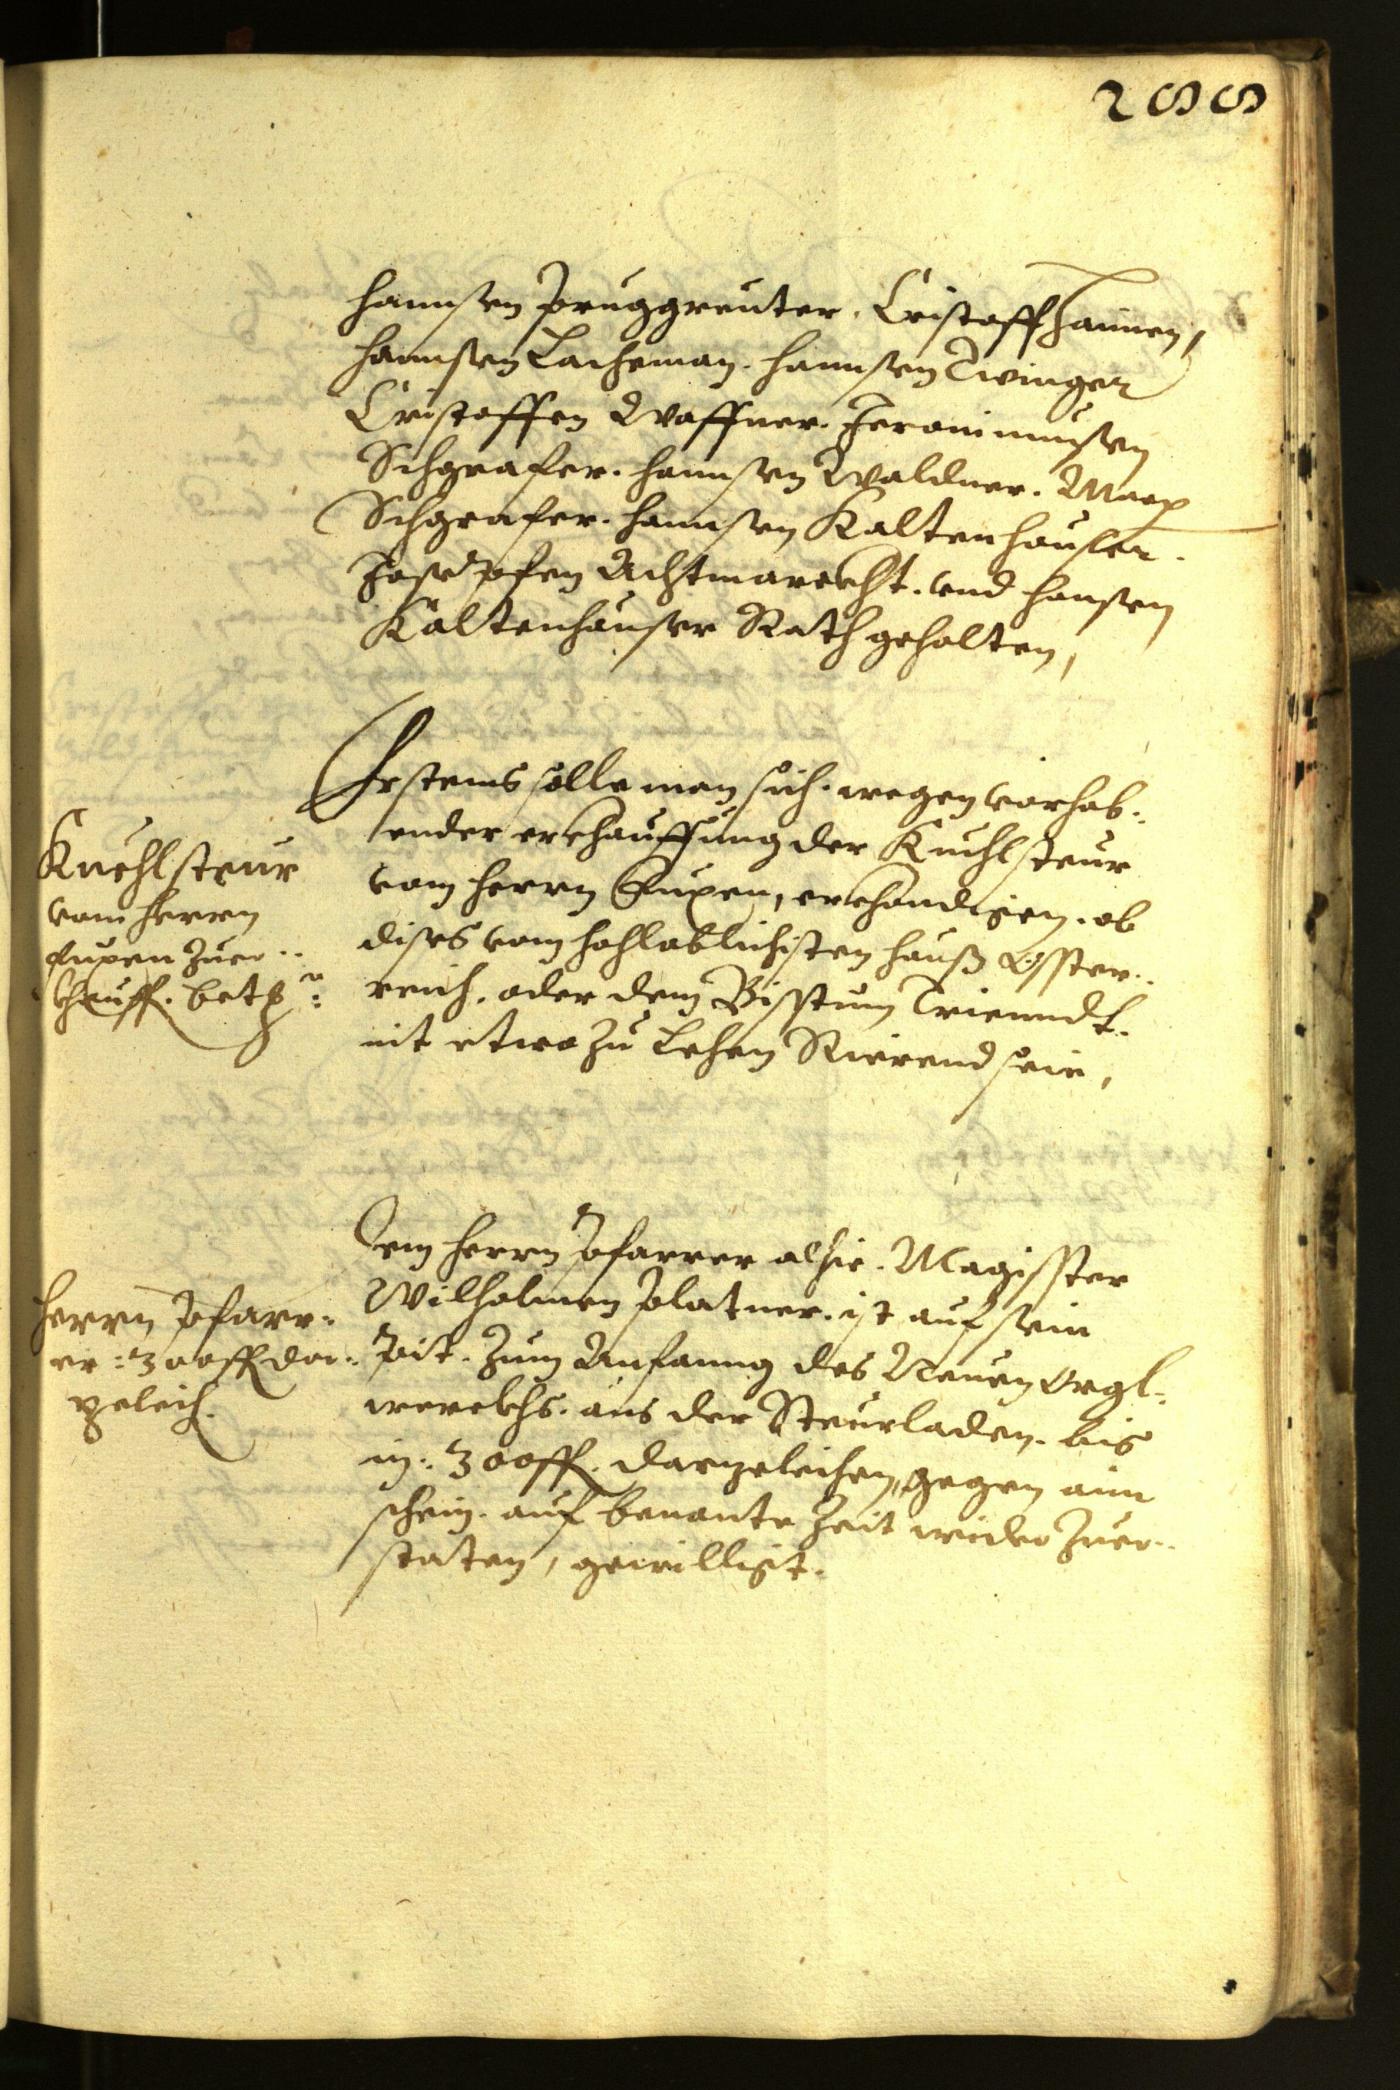 288
Hannsen Pruggreuter. Cristoff Hannen,
Hannsen Lacheman. Hannsen Zwinger
Cristoffen Waffner. Jeronimussen
Schgrafer. Hannsen Waldner. Marx
Schgrafer. Hannsen Kaltenhauser.
Josephen Achtmarckht. vnd Hansen
Kaltenhauser Rath gehalten,
Erstens solle man sich. wegen vorhab:
ender erkhauffung der Kuchlsteur
vom Herrn Fuxen, erkhondigen. ob
dises vom hohlöblichisten hauß Össter:
reich. oder dem Bisstum Trienndt.
nit etwo zu Lehen Rierend seie,
Kuchlsteur
vom Herrn
Fuxen zuer:
khauff. betr:
Dem Herrn Pfarrer alhie. Magisster
Wilhalmen Platner. ist auf sein
Pit. zum Anfanng des Neuen Orgl:
werckhs. aus der Steurladen. bis
in: 300 fl. dargelichen, gegen ain
schein. auf benante Zeit wider zuer:
staten, gewilligt.
Herrn Pfarr:
er: 300 fl dar:
gelich.